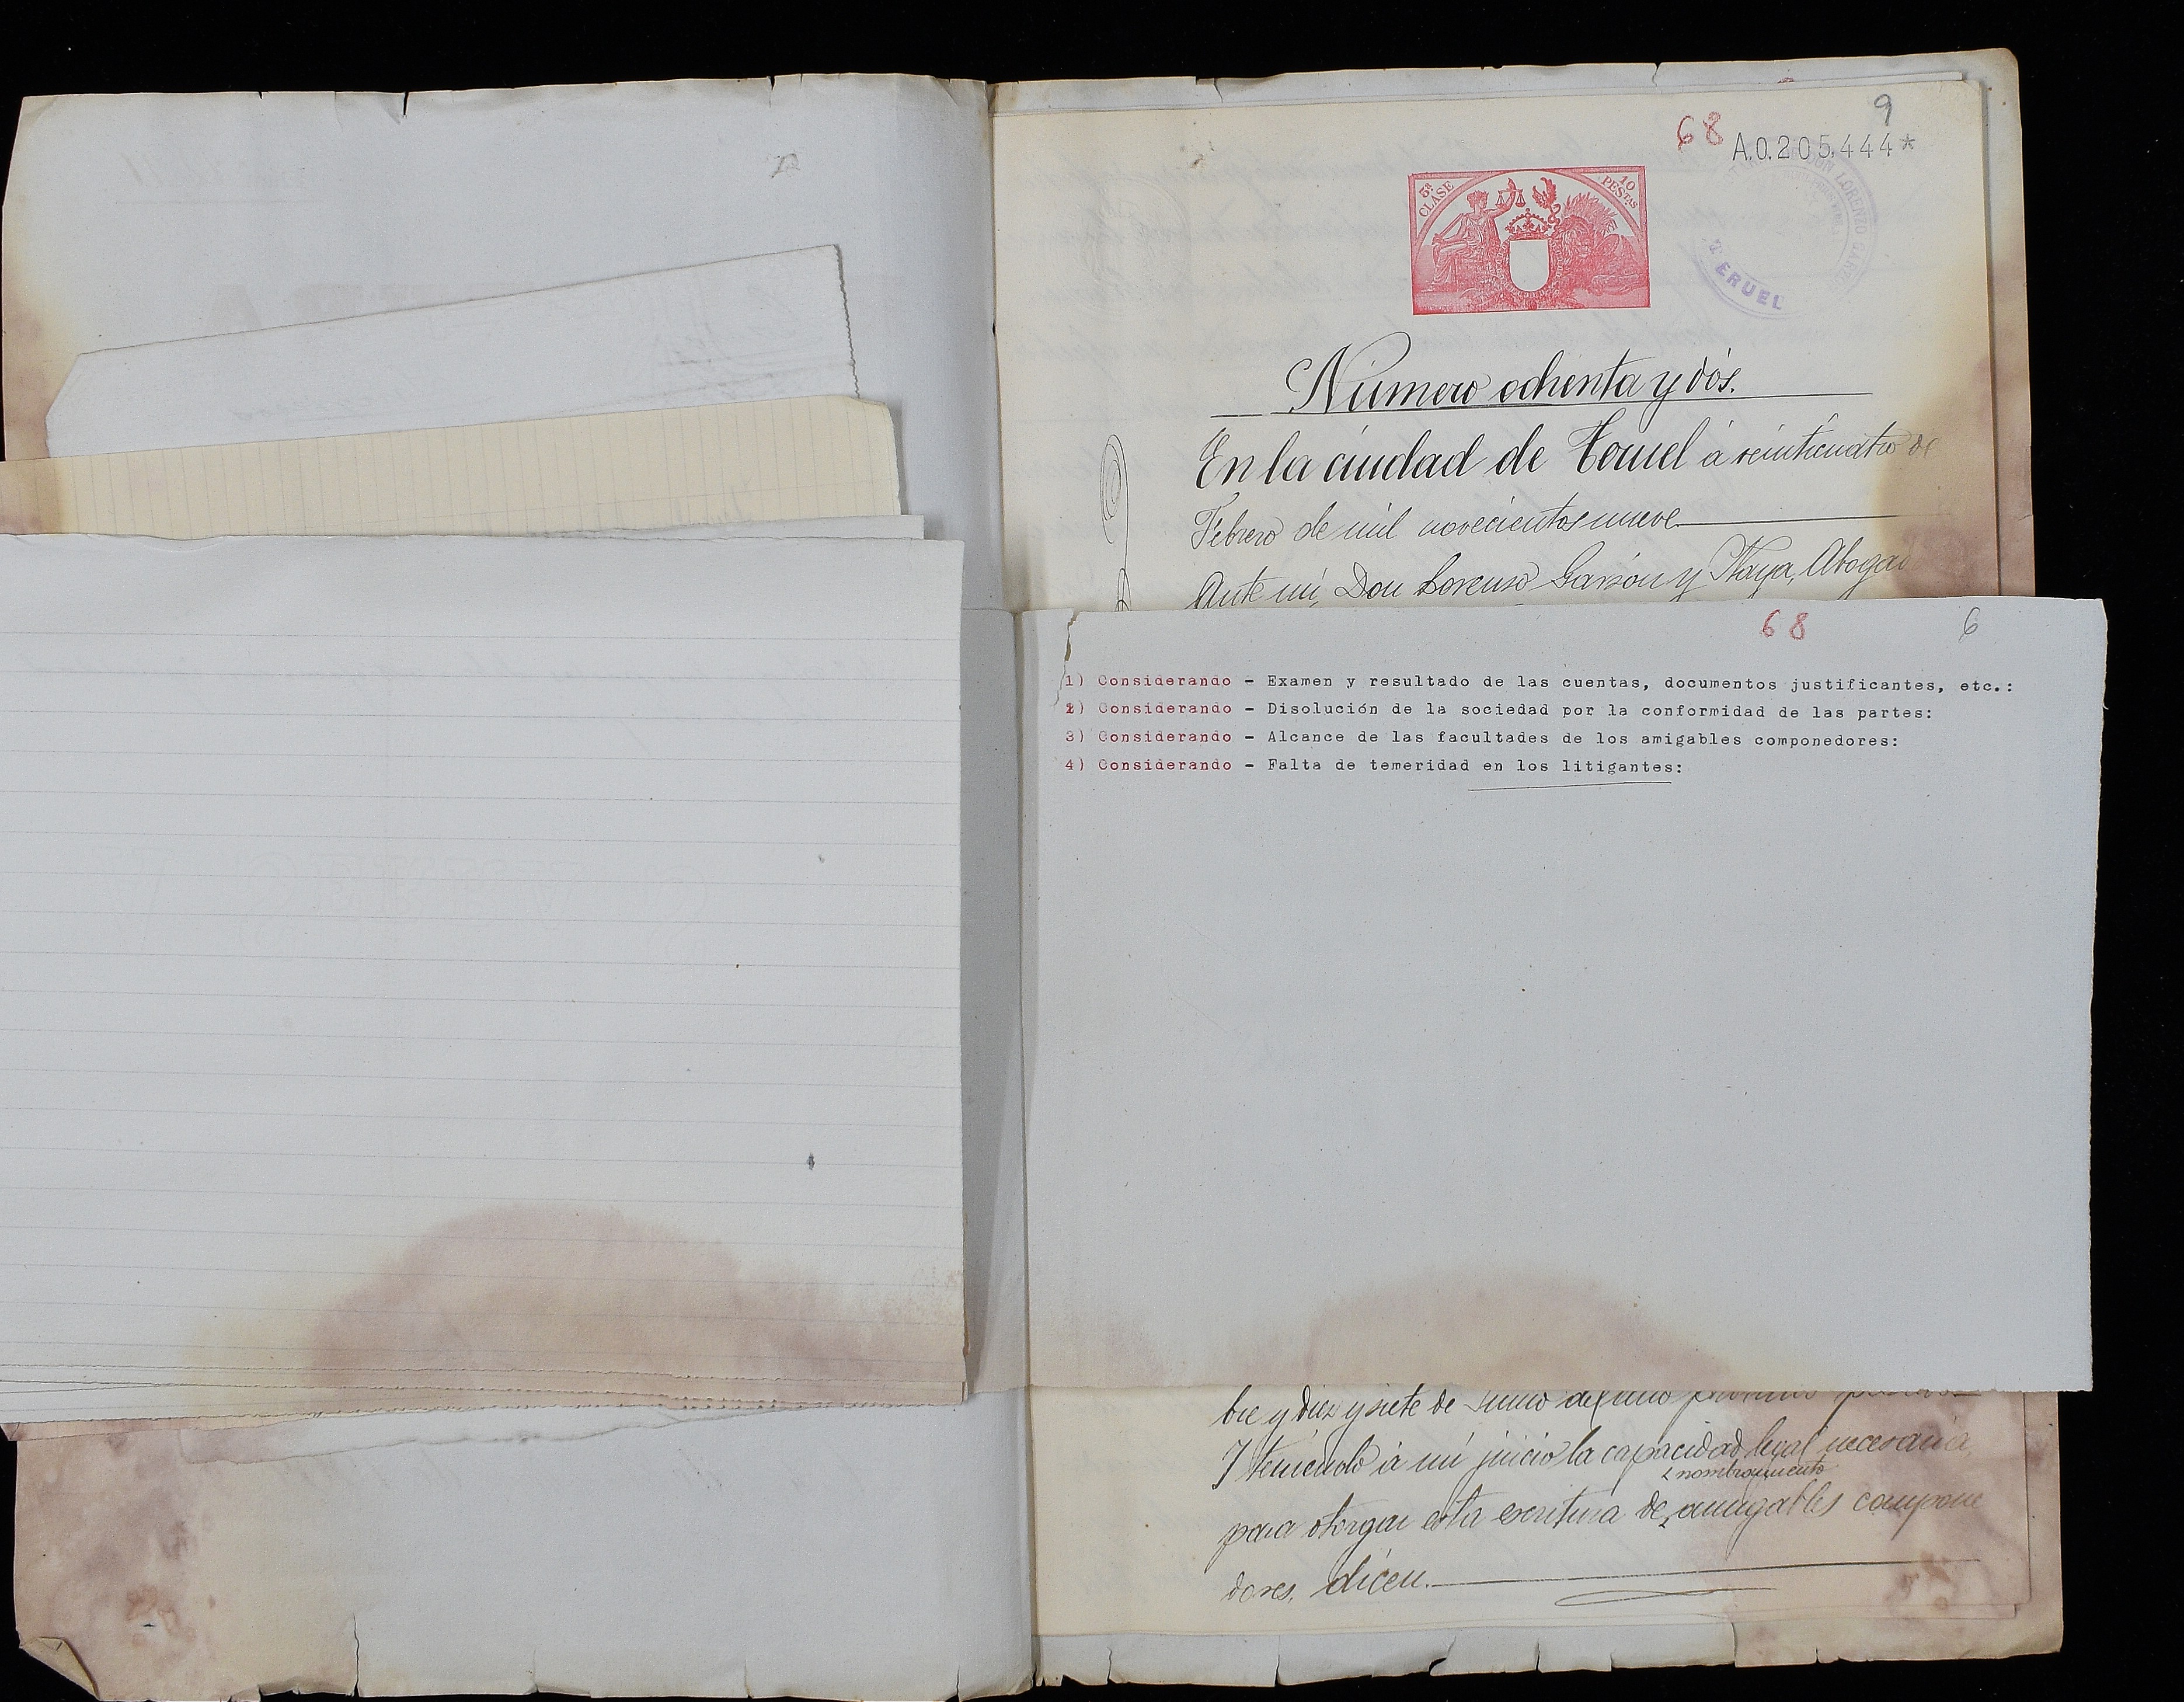 9
68
A.0.205.444*
5ª CLASE
10 PESTAS
DON LORENZO
TERUEL
Número ochenta y dós.
En la ciudad de Teruel á veinticuatro de
Febrero de mil novecientos nueve
Ante mí, Don Lorenzo Garzón y Naya, Abogad
68 6
1) Considerando - Examen y resultado de las cuentas, documentos justificantes, etc.:
2) Considerando - Disolución de la sociedad por la conformidad de las partes:
3) Considerando - Alcance de las facultades de los amigables componedores:
4) Considerando - Falta de temeridad en los litigantes:
bre y diez y siete de Junio del año
Y teniendo á mi juicio la capacidad legal necesaria
nombramiento
para otorgar esta escritura de amigables compone
dores, dicen.